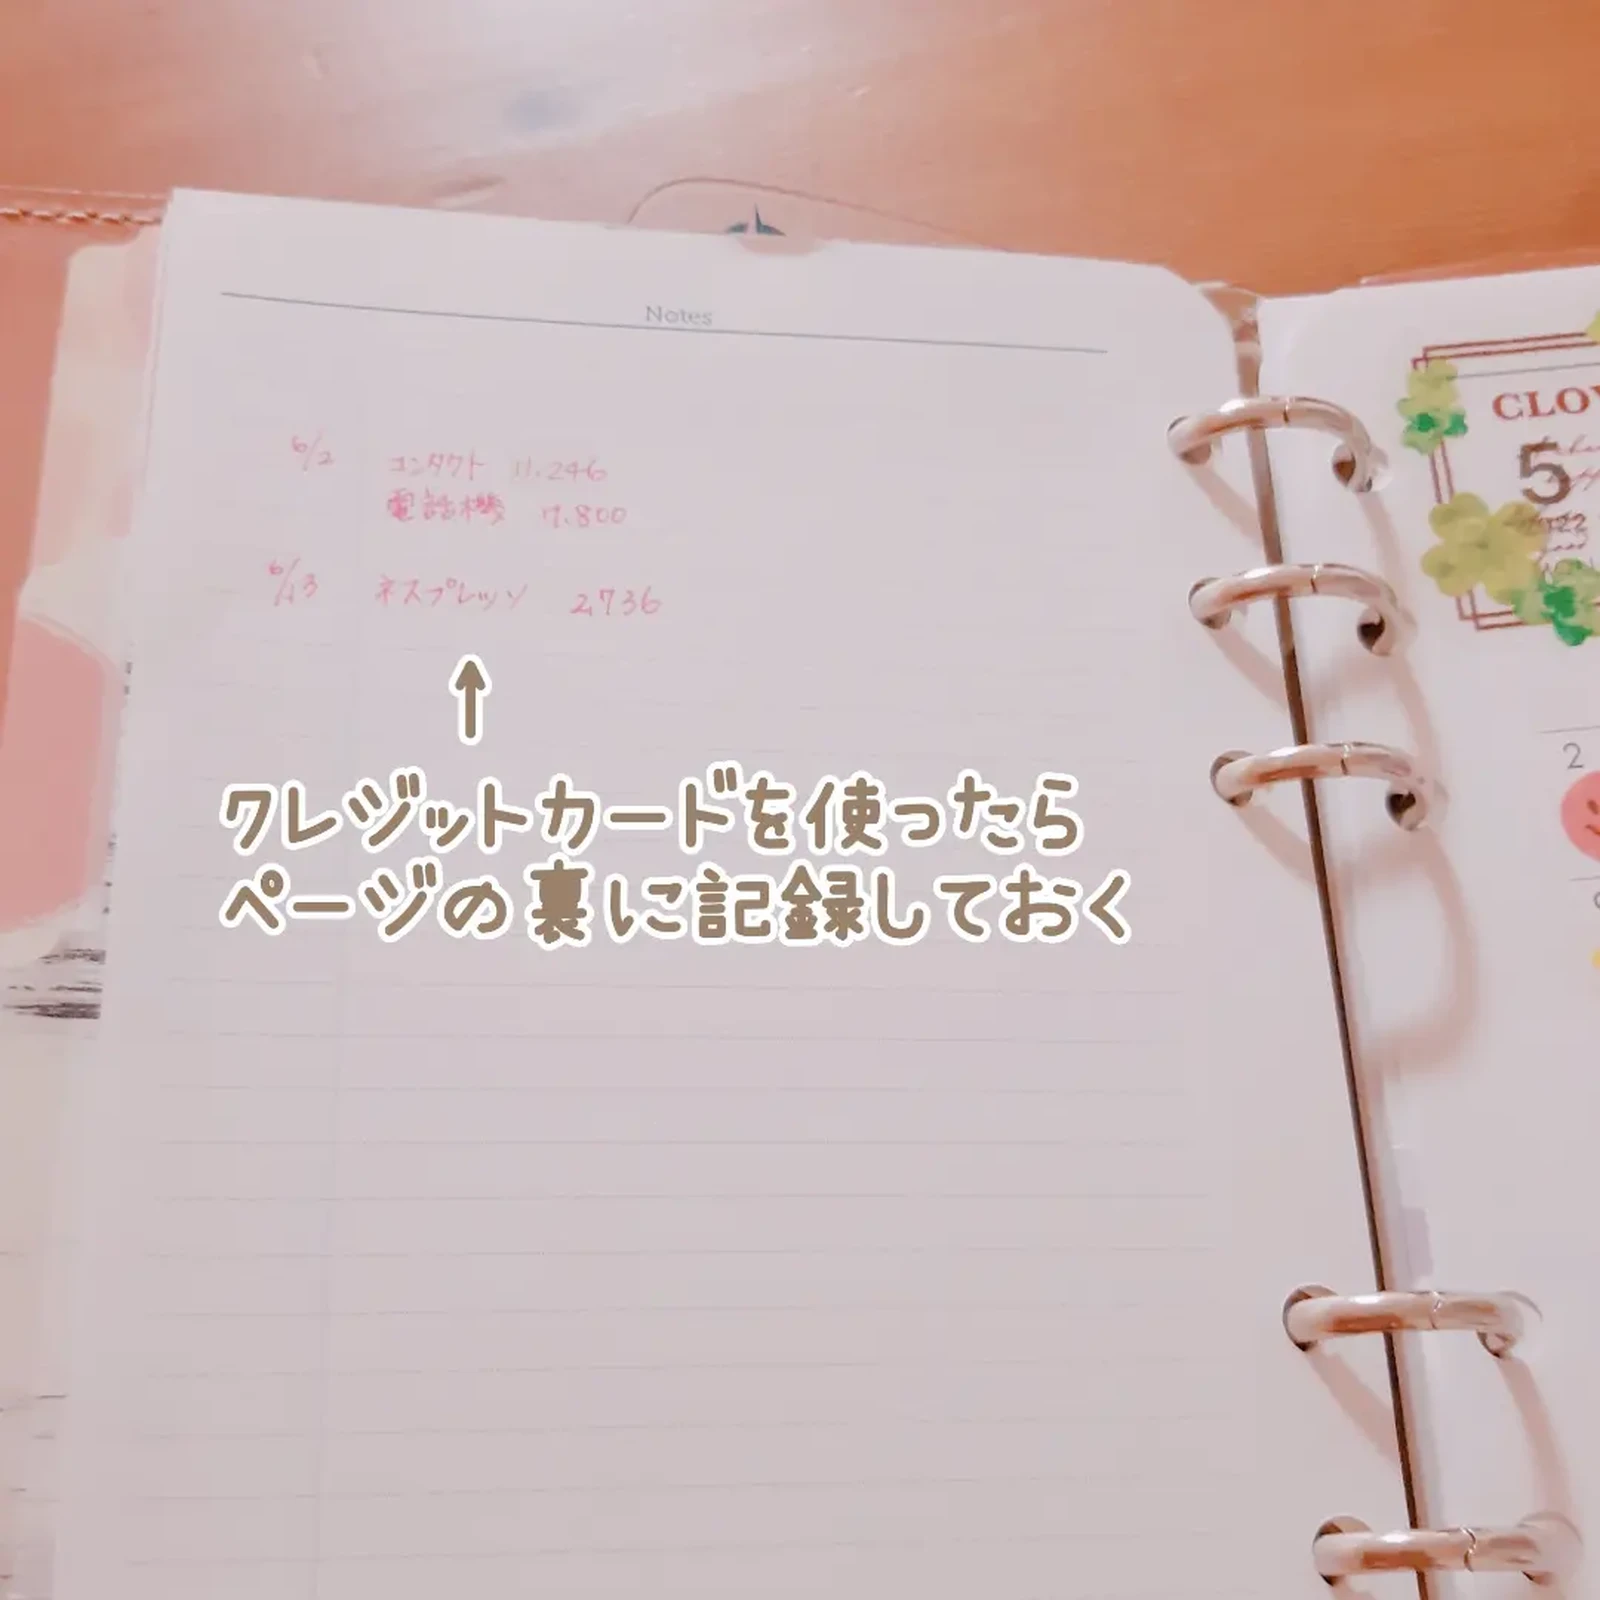 Notes
6/2 コンタクト 11.246
電話機 7.800
6/13 ネスプレッソ 2,736
↑
クレジットカードを使ったら
ページの裏に記録しておく
CLOV
5
2022
2